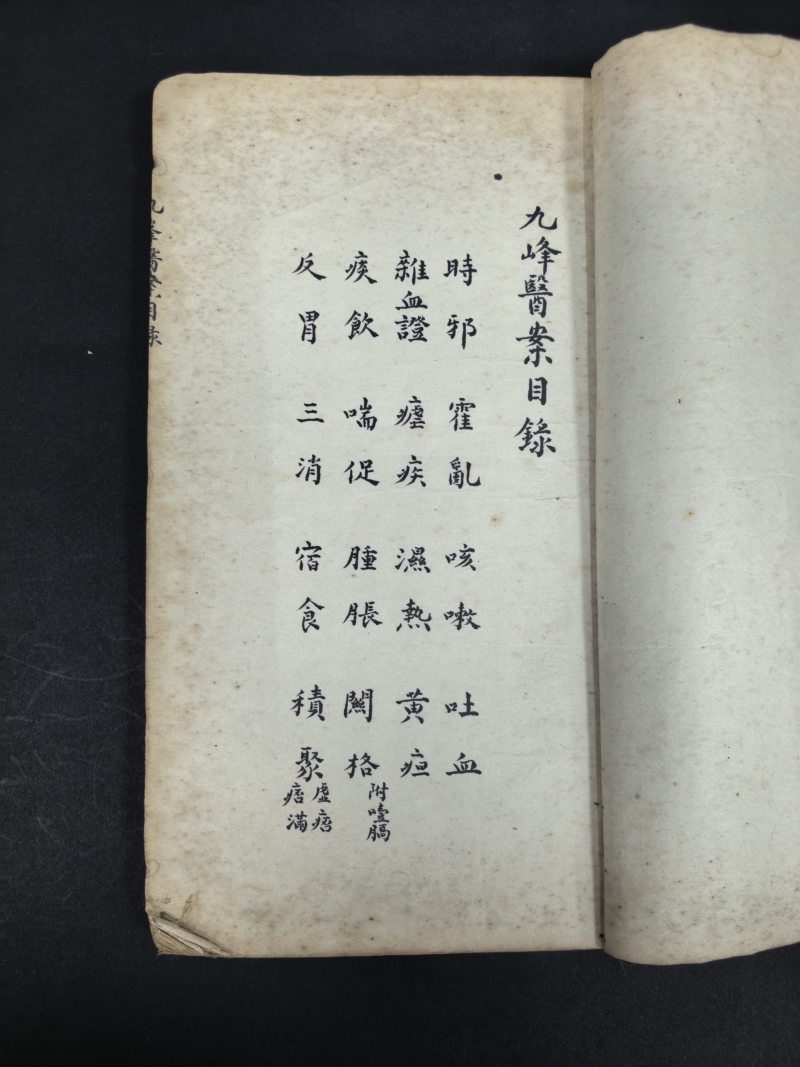 九峰醫案目錄
時邪 霍亂 咳嗽 吐血
雜血證 瘧疾 濕熱 黃疸
痰飲 喘促 腫脹 關格 附噎膈
反胃 三消 宿食 積聚 虛痞 痞滿
九峰醫案目錄